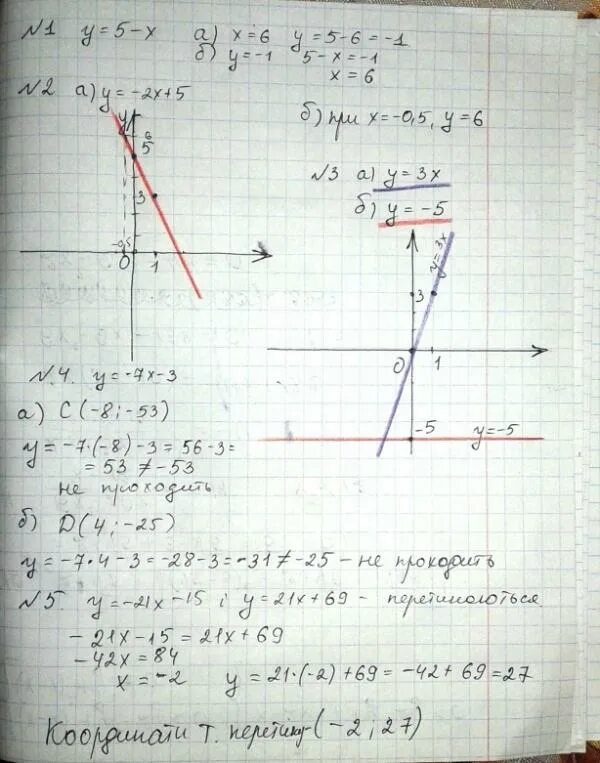 №1 y=5-x а) x=6 y=5-6=-1
б) y=-1 5-x=-1
x=6
№2 а) y=-2x+5
б) при x=-0,5, y=6
y
6
5
3
-0,5
0 1
№3 а) y=3x
б) y=-5
y=3x
3
0 1
-5 y=-5
№4. y=-7x-3
а) C(-8;-53)
y=-7·(-8)-3=56-3=
=53≠-53
не проходить
б) D(4;-25)
y=-7·4-3=-28-3=-31≠-25 - не проходить
№5. y=-21x-15 і y=21x+69 - перетинаються
-21x-15=21x+69
-42x=84
x=-2 y=21·(-2)+69=-42+69=27
Координати т. перетину (-2;27)